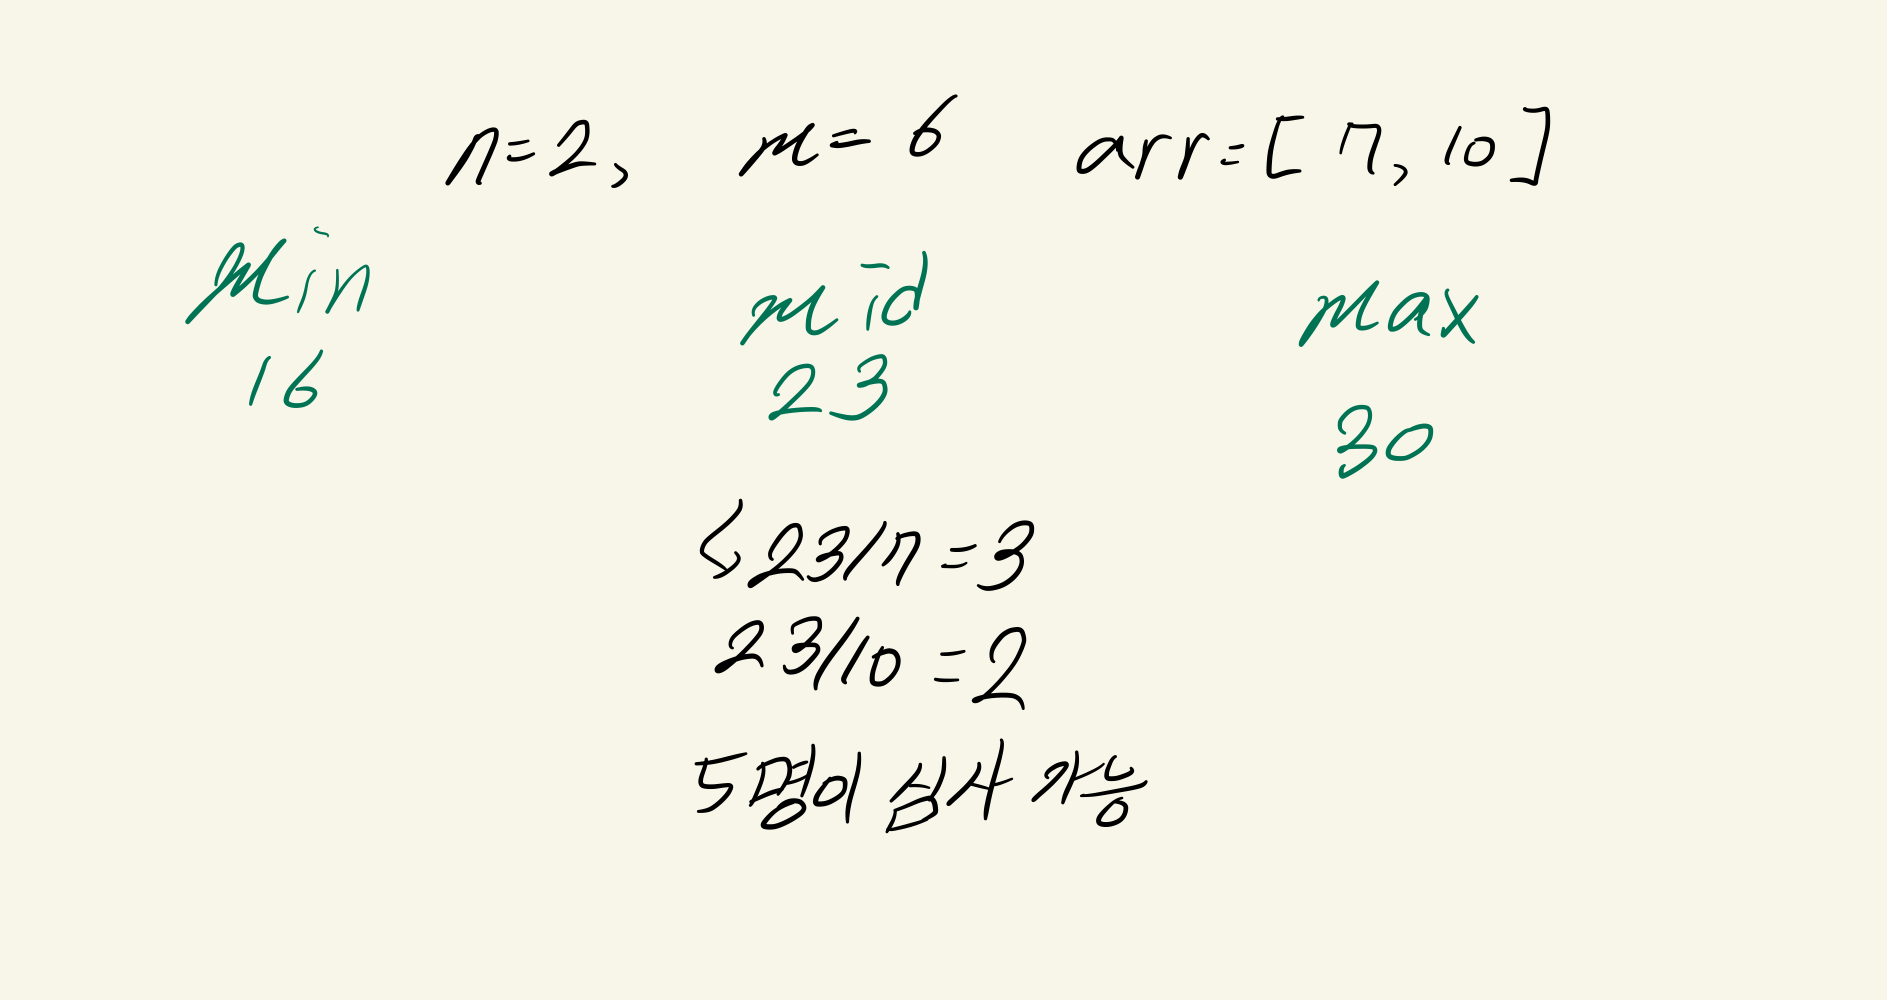 n=2, m=6 arr=[7, 10]
min mid max
16 23 30
↳ 23/7=3
23/10=2
5명이 심사 가능